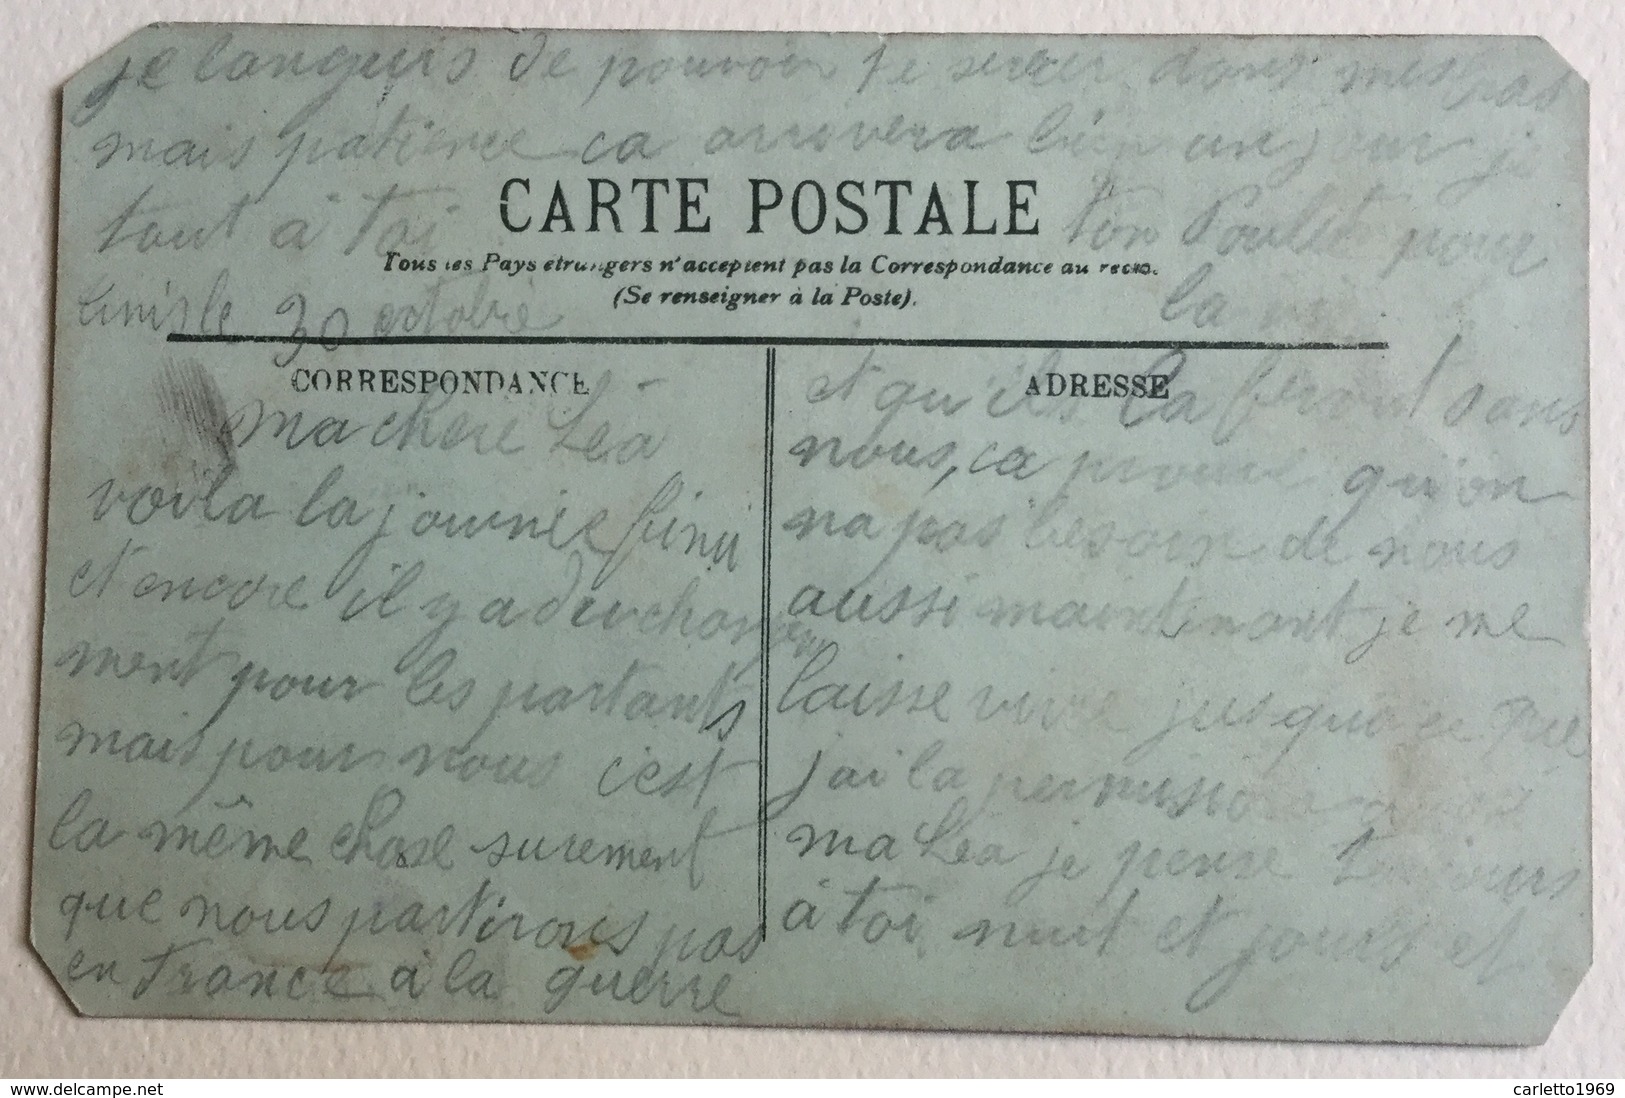 je languis de pouvoir te serrer dans mes bras
mais patience ca arrivera bien un jour je
tout à toi ton Poulet pour
CARTE POSTALE
Tous les Pays étrangers n'acceptent pas la Correspondance au recto.
(Se renseigner à la Poste).
le 30 octobre
la vie
CORRESPONDANCE
Ma chere Léa
voila la journée fini
et encore il y a du changement
ment pour les partants
mais pour nous c'est
la même chose surement
que nous partirons pas
en France à la guerre
ADRESSE
et qu'ils la feront sans
nous, ca prouve qu'on
na pas besoin de nous
aussi maintenant je me
laisse vivre jusqua ce que
jai la permission
ma Léa je pense toujours
à toi nuit et jours et
www.delcampe.net
carletto1969